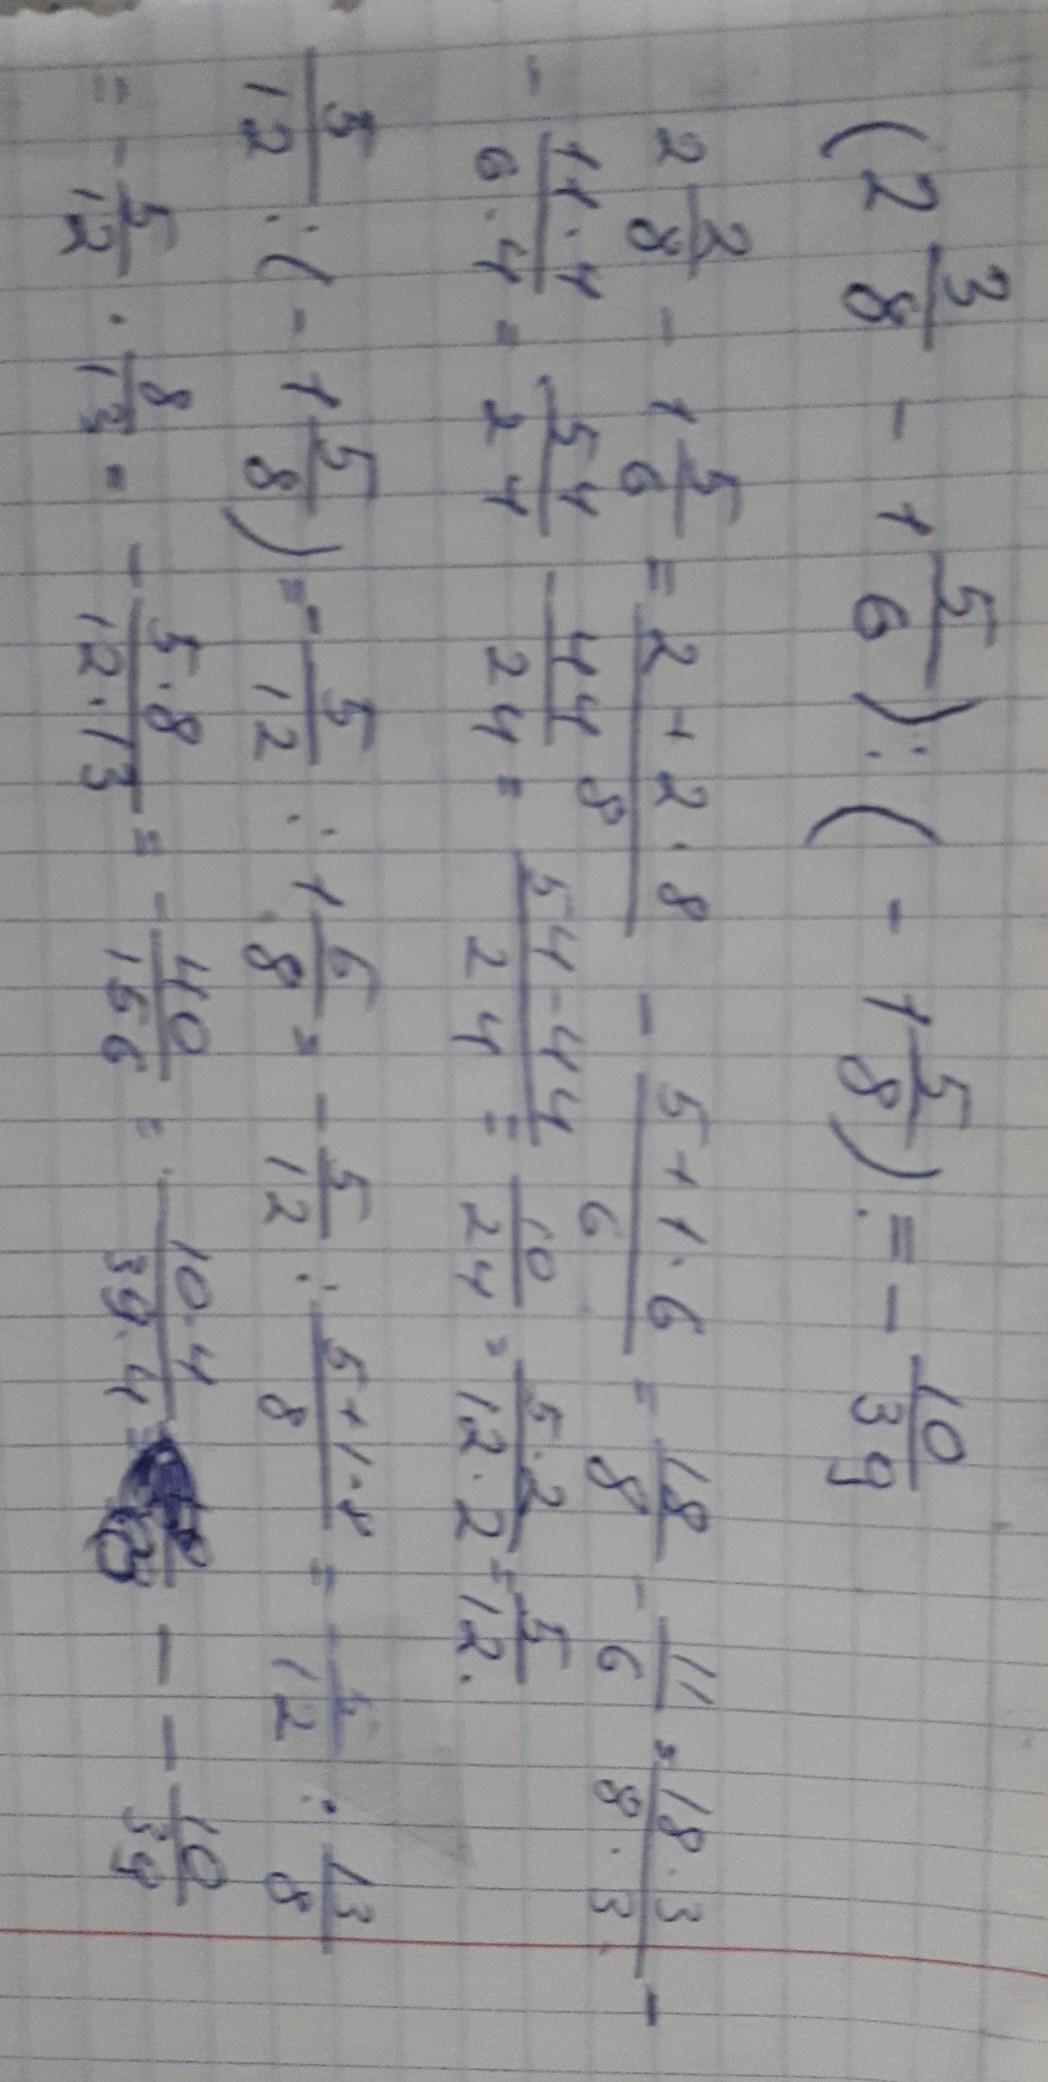 (2 3/8 - 1 5/6) : (- 1 5/8) = - 10/39
2 2/8 - 1 5/6 = (2+2·8)/8 - (5+1·6)/6 = 18/8 - 11/6 = (18·3)/(8·3) -
- (11·4)/(6·4) = 54/24 - 44/24 = (54-44)/24 = 10/24 = (5·2)/(12·2) = 5/12.
5/12 : (- 1 5/8) = - 5/12 : 1 6/8 = - 5/12 : (5+1·8)/8 = 5/12 : 13/8
= - 5/12 · 8/13 = - (5·8)/(12·13) = - 40/156 = - (10·4)/(39·4) = - - 10/39